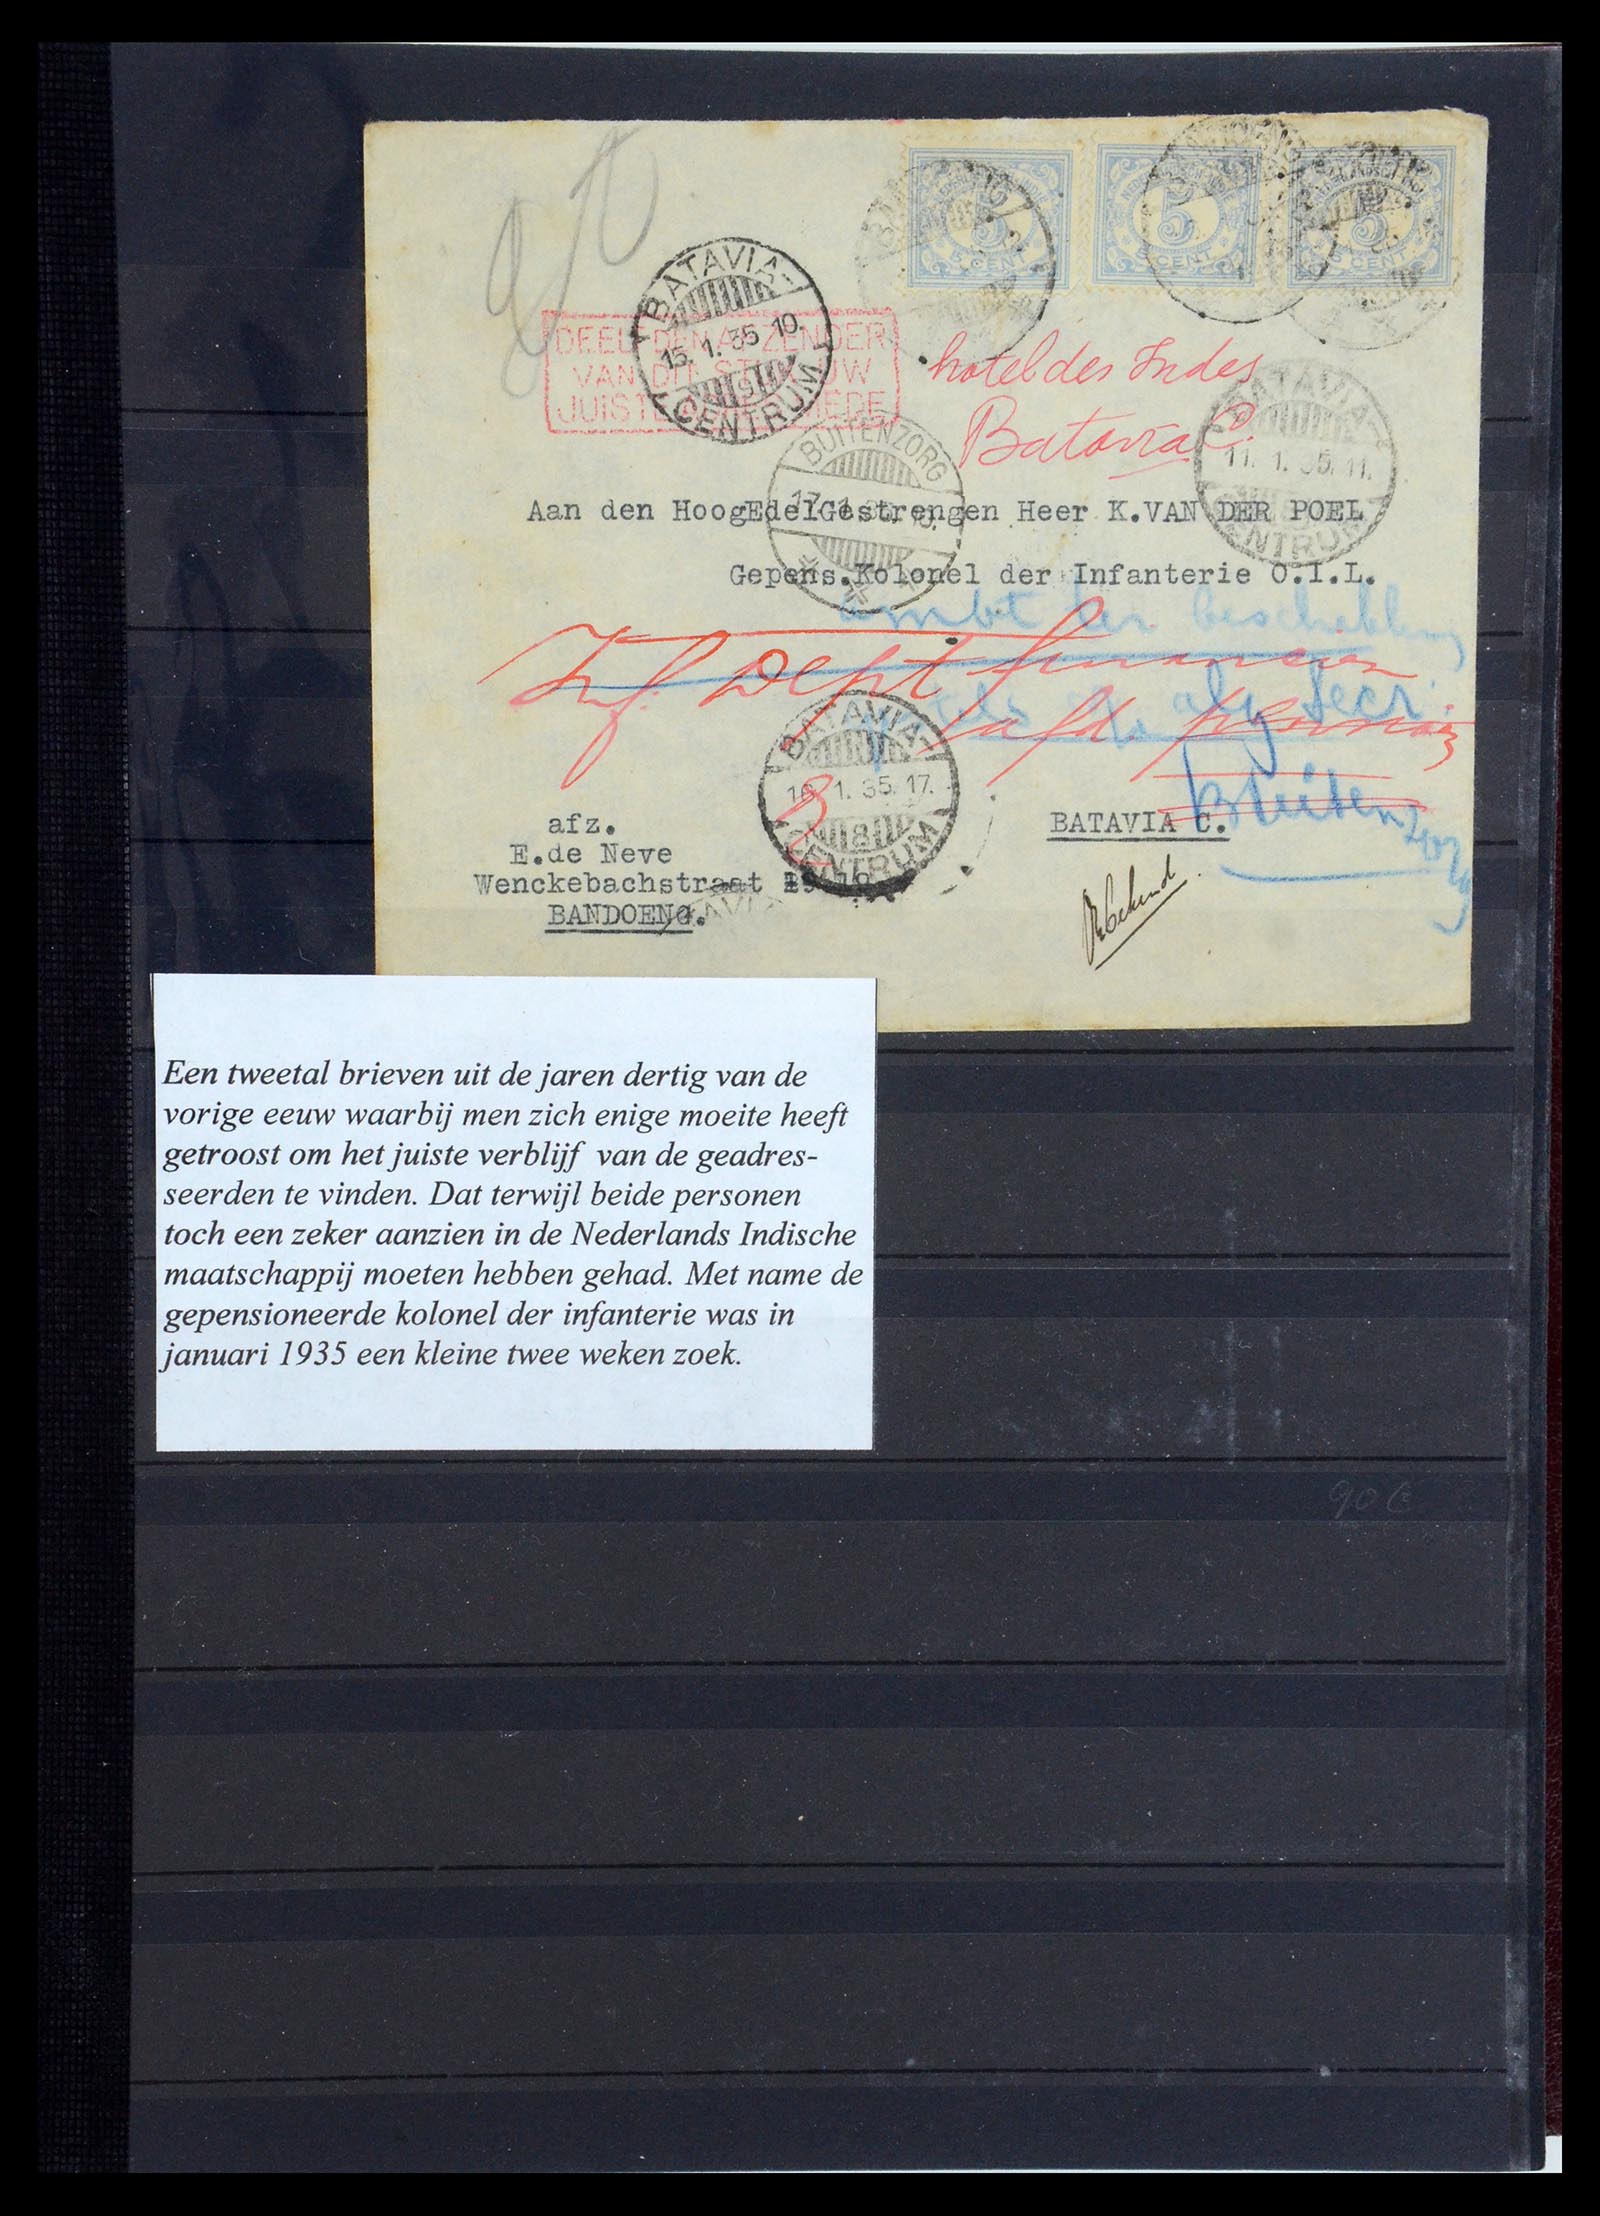 BATAVIA-
15.1.35 10.
9
CENTRUM
DEEL DEN AFZENDER
VAN DIT STUK UW
JUISTE
5
5 CENT
5
5 CENT
5
5 CENT
hotel des Indes
Batavia C.
BATAVIA-
11.1.35.11.
CENTRUM
BUITENZORG
17.1.35.10.
Aan den HoogEdelGestrengen Heer K.VAN DER POEL
Gepens.Kolonel der Infanterie O.I.L.
ambt ter beschikking
Inf. Dept financien
alg. Secr.
afd. pensioenen
Buitenzorg
BATAVIA-
16.1.35.17.
8
CENTRUM
BATAVIA C.
afz.
E.de Neve
Wenckebachstraat
BANDOENG.
Onbekend
Een tweetal brieven uit de jaren dertig van de
vorige eeuw waarbij men zich enige moeite heeft
getroost om het juiste verblijf van de geadres-
seerden te vinden. Dat terwijl beide personen
toch een zeker aanzien in de Nederlands Indische
maatschappij moeten hebben gehad. Met name de
gepensioneerde kolonel der infanterie was in
januari 1935 een kleine twee weken zoek.
90 €